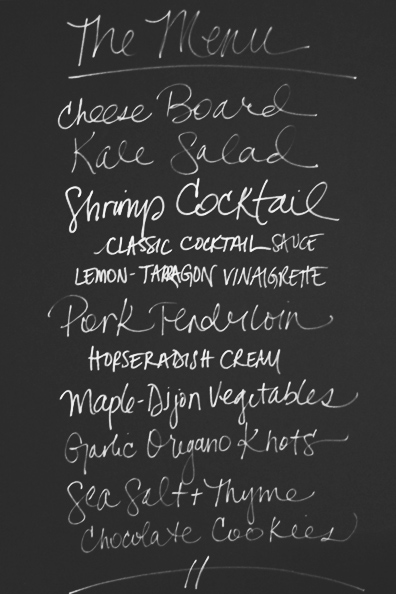 The Menu
Cheese Board
Kale Salad
Shrimp Cocktail
CLASSIC COCKTAIL SAUCE
LEMON-TARRAGON VINAIGRETTE
Pork Tenderloin
HORSERADISH CREAM
Maple-Dijon Vegetables
Garlic Oregano Knots
Sea Salt + Thyme
Chocolate Cookies